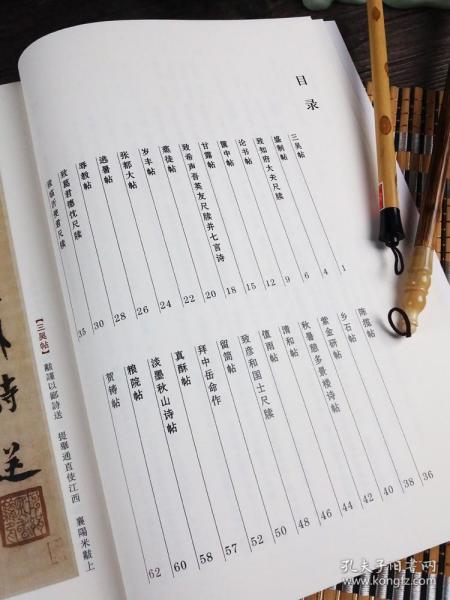 目录
三吴帖 1
盛制帖 4
致知府大夫尺牍 6
论书帖 9
箧中帖 12
甘露帖 15
致希声吾英友尺牍并七言诗 18
徒帖 20
岁丰帖 22
张都大帖 24
逃暑帖 26
辱教帖 28
致葛君德忱尺牍 30
致临沂使君尺牍 35
陈揽帖 36
乡石帖 38
紫金研帖 40
秋暑憩多景楼诗帖 42
清和帖 44
值雨帖 46
致彦和国士尺牍 48
留简帖 50
拜中岳命作 52
真酥帖 57
淡墨秋山诗帖 58
粮院帖 60
贺铸帖 62
【三吴帖】 黻謹以鄙詩送 提舉通直使江西 襄陽米黻上
詩送
孔夫子旧书网
www.kongfz.com